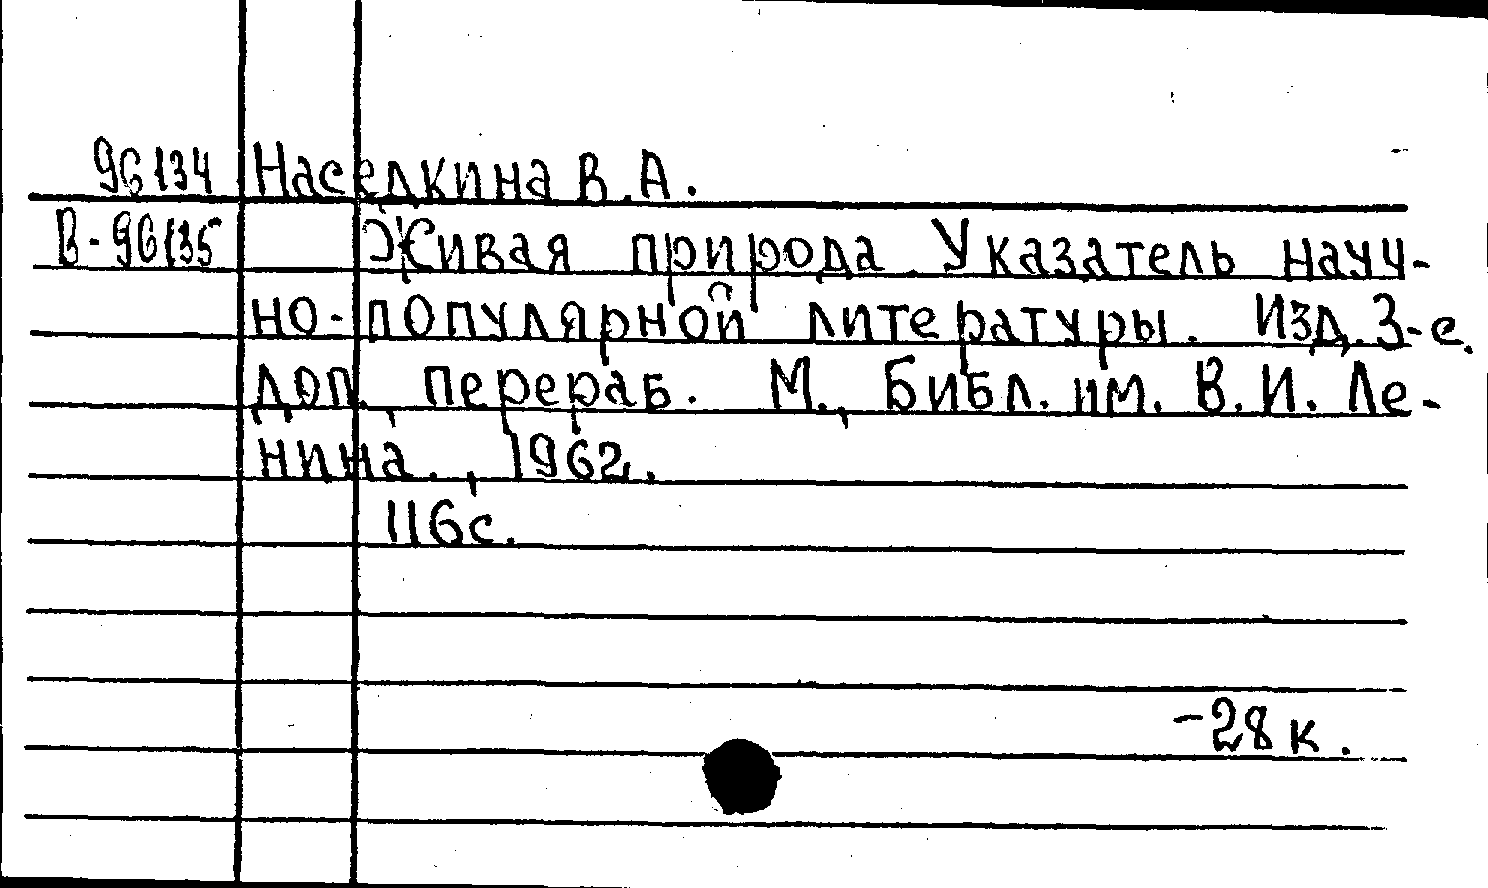 96134 Наседкина В.А.
В-96135 Живая природа. Указатель науч-
но-популярной литературы. Изд. 3-е.
доп., перераб. М., Библ. им. В.И. Ле-
нина., 1962.
116с.
-28 к.